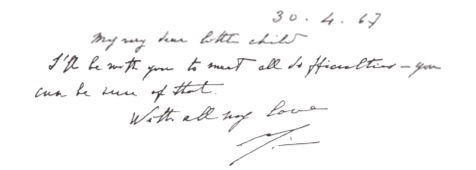 30.4.67
My very dear little child
I'll be with you to meet all difficulties – you
can be sure of that.
With all my love